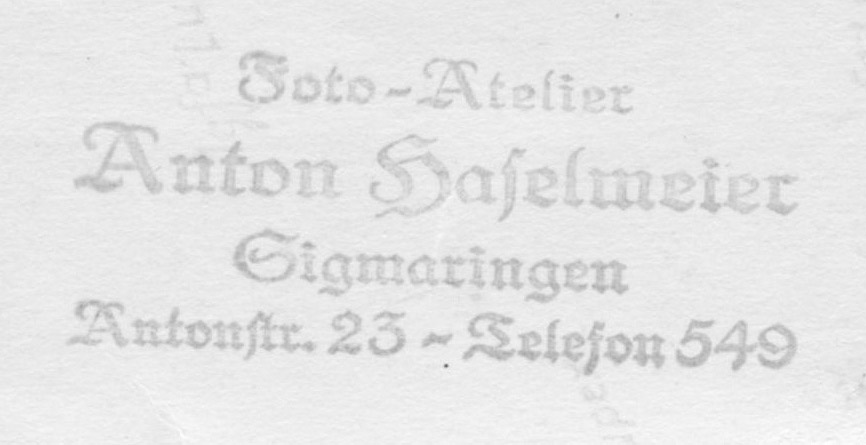 Foto-Atelier
Anton Haſelmeier
Sigmaringen
Antonſtr. 23 - Telefon 549